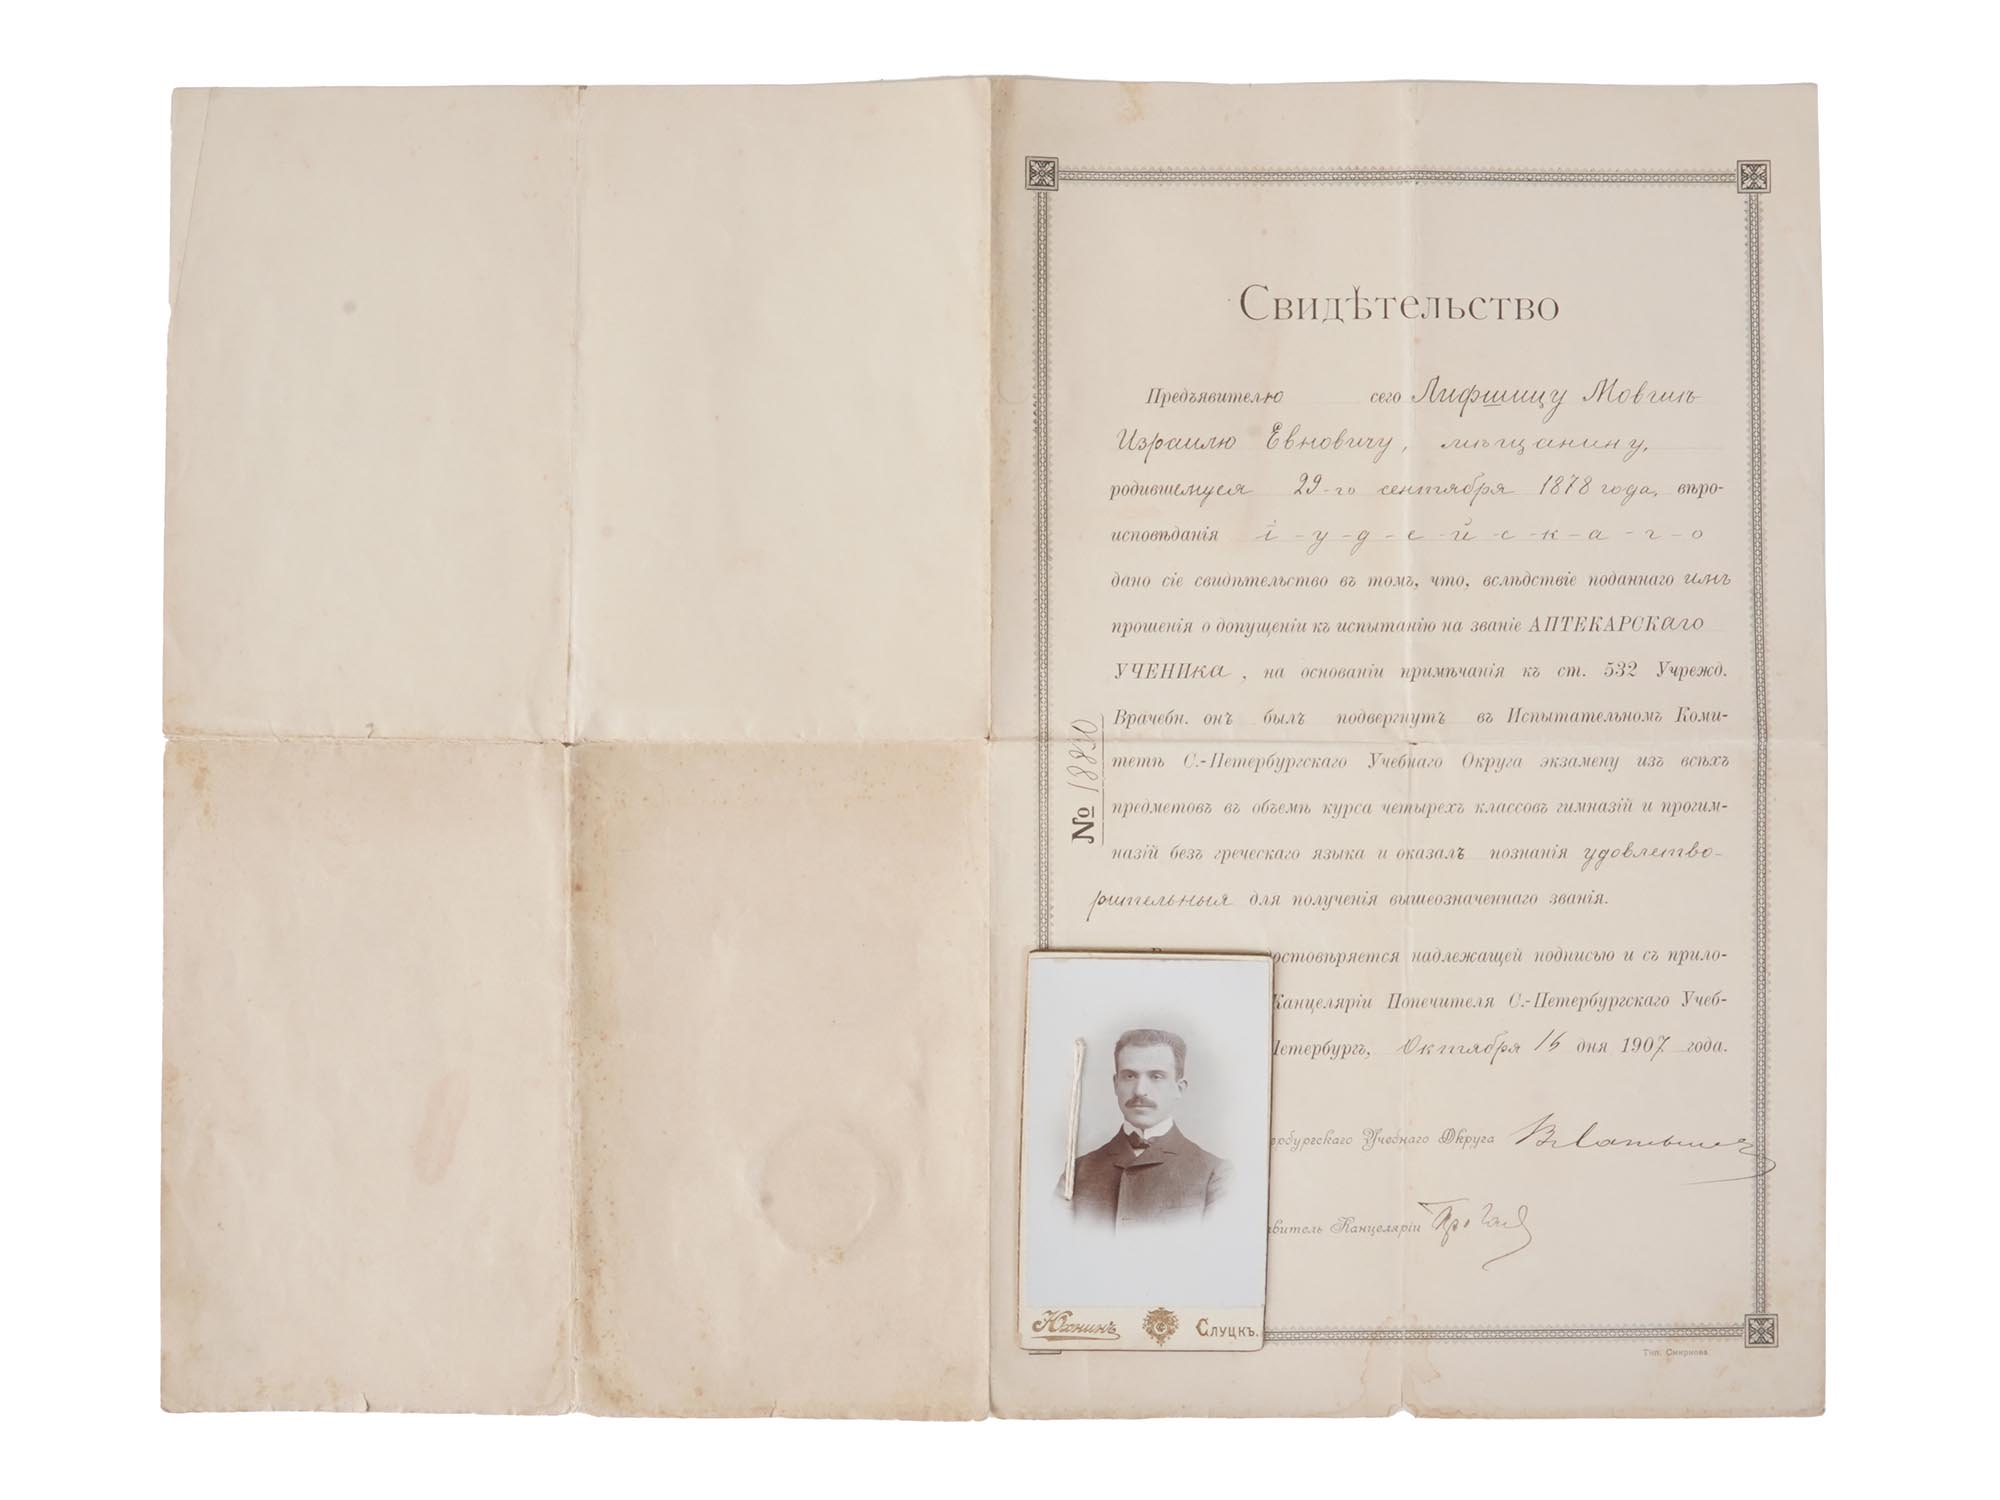 Свидѣтельство
Предъявителю сего Лифшицу Мовши
Израилю Евновичу, мѣщанину,
родившемуся 29-го сентября 1878 года, вѣро-
исповѣданія і-у-д-е-й-с-к-а-г-о
дано сіе свидѣтельство въ томъ, что, вслѣдствіе поданнаго имъ
прошенія о допущеніи къ испытанію на званіе АПТЕКАРСКаго
УЧЕНИка, на основаніи примѣчанія къ ст. 532 Учрежд.
Врачебн. онъ былъ подвергнутъ въ Испытательномъ Коми-
тетѣ С.-Петербургскаго Учебнаго Округа экзамену изъ всѣхъ
предметовъ въ объемѣ курса четырехъ классовъ гимназій и прогим-
назій безъ греческаго языка и оказалъ познанія удовлетво-
рительныя для полученія вышеозначеннаго званія.
остовѣряется надлежащей подписью и съ прило-
Канцеляріи Попечителя С.-Петербургскаго Учеб-
Петербургъ, Октября 16 дня 1907 года.
ербургскаго Учебнаго Округа
витель Канцеляріи
№ 18810
Юхнинъ Слуцкъ.
Тип. Смирнова